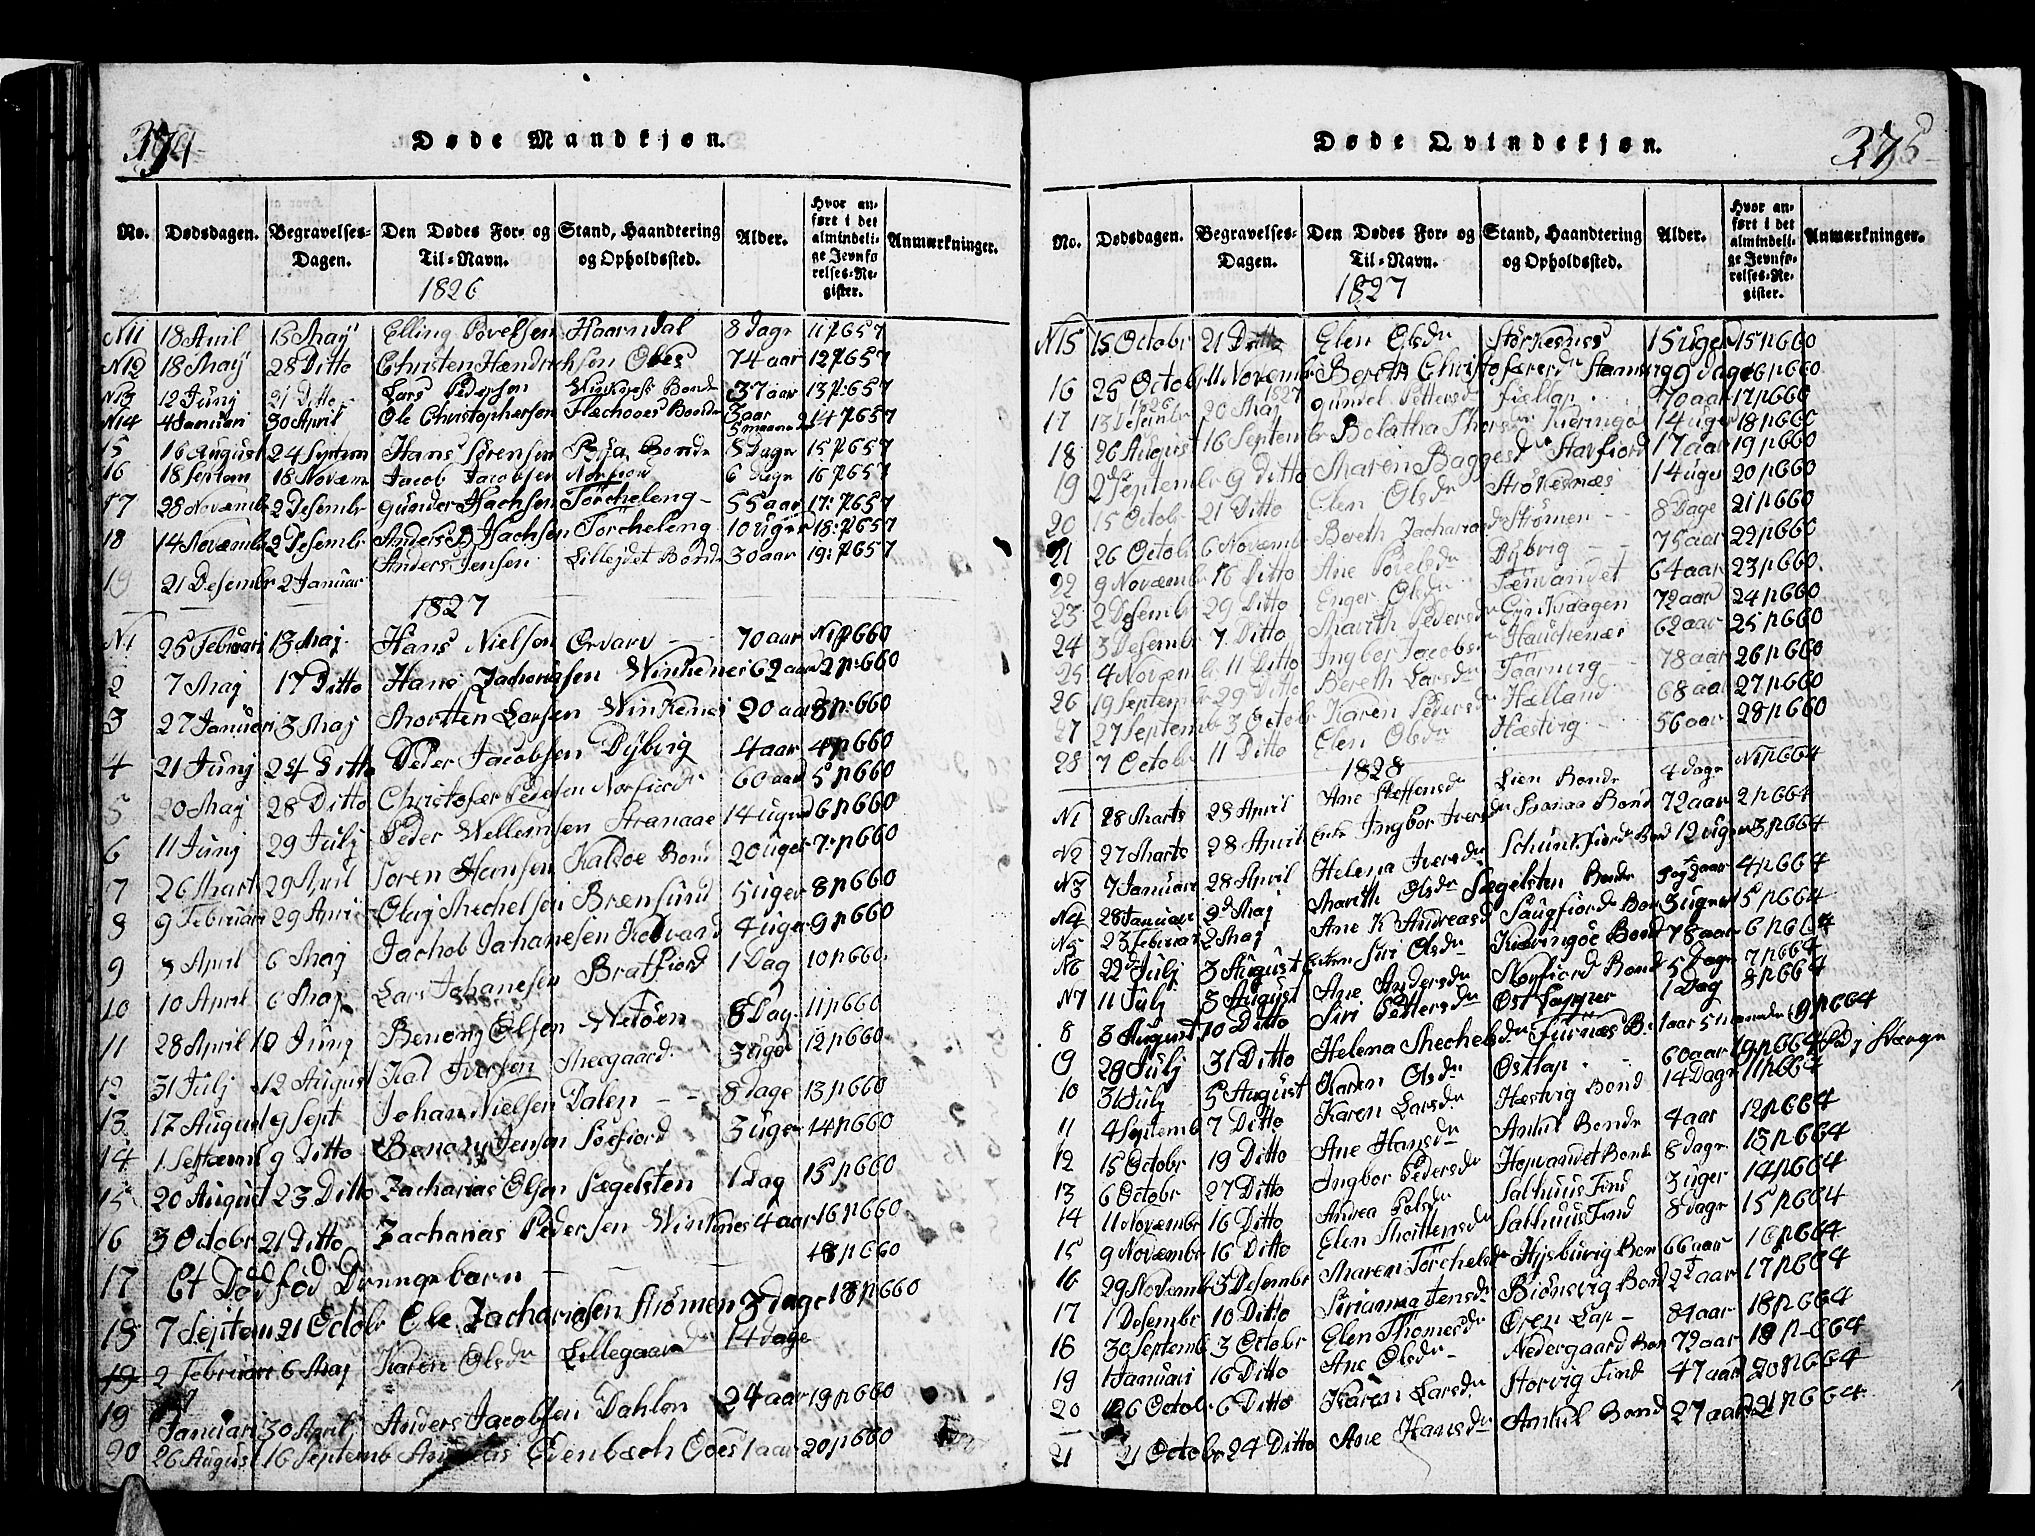 374
Døde Mandkjøn.
No. Dødsdagen. Begravelses-Dagen. Den Dødes For- og Til-Navn. Stand, Haandtering og Opholdssted. Alder. Hvor anført i det almindelige Jevnførelses-Register. Anmærkninger.
1826
N11 18 April 15 Maÿ Elling Povelsen Haarndal 8 Dage 11 p657
N12 18 Maÿ 28 Ditto Christen Hendrichsen Obes 74 aar 12 p657
N13 12 Junÿ 21 Ditto Lars Pedersen Winkenes Bonde 37 aar 13 p657
N14 4 Januari 30 April Ole Christophersen Bonde 3 aar 5 maaneder 14 p657
15 16 August 24 Septem Hans Sørensen Røsa Bonde 8 Dage 15 p657
16 18 Septem 18 Novem Jacob Jacobsen Norfiord 6 16 p657
17 28 Novembr 2 Desembr Gunder Jsachsen Torcheleng 55 aar 17 p657
18 14 Novembr 2 Desembr Anders B Jsachsen Torcheleng 10 uger 18 p657
19 21 Desembr 2 Januar Anders Jensen Lilleidet Bonde 30 aar 19 p657
1827
N1 25 Februari 13 Maj Hans Nielsen Ørvarv 70 aar N1 p660
2 7 Maj 17 Ditto Hans Zachariasen Winkenes 62 aar 2 p660
3 27 Januari 3 Maj Morten Larsen Winkenes 20 aar 3 p660
4 21 Junj 24 Ditto Peder Jacobsen Dÿbvig 4 aar 4 p660
5 20 Maj 28 Ditto Christofer Pedersen Norfiord 60 aar 5 p660
6 11 Junj 29 Julj Peder Wellemsen Stranaae 14 uger 6 p660
7 26 Marts 29 April Soren Hansen Kalsøe Bond 20 uger 7 p660
8 9 Februari 29 April Olaj Mechelsen Brensund 5 uger 8 p660
9 5 April 6 Maj Jachob Johanesen Kobvand 4 uger 9 p660
10 10 April 6 Maj Lars Johanesen Bratfiord 1 Dag 10 p660
11 28 April 10 Junj Benonj Olsen 8 Dag 11 p660
12 31 Julj 12 August Kal Iversen Moegaard 3 uger 12 p660
13 17 August 9 Sept Johan Nielsen Dalen 8 dage 13 p660
14 1 Septembr 9 Ditto Benonj Jensen Soefiord 3 uger 14 p660
15 20 August 23 Ditto Zacharias Olsen Sægelsten 1 Dag 15 p660
16 3 Octobr 21 Ditto Zacharias Pedersen Winkenes 4 aar 16 p660
17 Et Dødfød Drengebarn 18 p660
18 7 Septem 21 Octobr Ole Zachariasen Strömen 3 dage 18 p660
19 2 Februari 6 Maj Karen Olsdr Lillegaard 14 dage
19 Januari 30 April Anders Jacobsen Dahlen 24 aar 19 p660
20 26 August 16 Septemb Andreas Eveneses 1 aar 20 p660
375
Døde Qvindekjøn.
No. Dødsdagen. Begravelses-Dagen. Den Dødes For- og Til-Navn. Stand, Haandtering og Opholdssted. Alder. Hvor anført i det almindelige Jevnførelses-Register. Anmærkninger.
1827
N15 15 Octobr 21 Ditto Elen Olsdr Störkesnes 15 uger 15 p660
16 25 Octobr 11 Novembr Bereth Christofersdr 9 dage 16 p660
17 13 Desembr 1826 20 Maj 1827 Gundel Pettersdr Fiellap 70 aar 17 p660
18 26 August 16 Septembr Bolatha Kieringø 14 uger 18 p660
19 2 Septembr 9 Ditto Maren Baggesdr Storfiord 17 aar 19 p660
20 15 Octobr 21 Ditto Elen Olsdr Strökesnæs 14 uger 20 p660
21 26 Octobr 6 Novembr Bereth Zachariasdr Strömen 8 Dage 21 p660
22 9 Novembr 16 Ditto Ane Povelsdr Dÿbvig 75 aar 22 p660
23 2 Desembr 29 Ditto Enger Olsdr 64 aar 23 p660
24 3 Desembr 7 Ditto Marith Pedersdr 72 aar 24 p660
25 4 Novembr 11 Ditto Ingbor Jacobsdr Hauchenæs 62 aar 25 p660
26 19 Septembr 29 Ditto Bereth Larsdr Taarnvig 78 aar 26 p660
27 27 Septembr 3 Octobr Karen Pedersdr Hælland 68 aar 27 p660
28 7 Octobr 11 Ditto Elen Olsdr Hæstvig 56 aar 28 p660
1828
N1 28 Marts 28 April Ane Steffensdr Lien Bonde 4 dage N1 p664
N2 27 Marts 28 April Enke Ingbor Iversdr Bond 72 aar 2 p664
N3 7 Januari 28 April Helena Iversdr 12 uger 3 p664
N4 28 Januari 3 Maj Marith Olsdr Sægelsten Bonde 4 p664
N5 23 Februar 2 Maj Ane K Andreasdr Saugfiord Bon 3 uger 5 p664
N6 22 Julj 3 August Enken Siri Olsdr Kieringøe Bond 78 aar 6 p664
N7 11 Julj 3 August Ane Andersdr Norfiord Bond 5 Dage 7 p664
8 3 August 10 Ditto Siri Pettersdr Øst 1 Dag 8 p664
9 28 Julj 31 Ditto Helena Mechelsdr Furnæs B. 1 aar 5 maander 9 p664
10 31 Julj 5 August Karen Olsdr Østlap 60 aar 10 p664
11 4 Septemb 7 Ditto Karen Larsdr Hæstvig Bond 14 Dage 11 p664
12 15 Octobr 19 Ditto Ane Hansdr Ankel Bonde 4 aar 12 p664
13 6 Octobr 27 Ditto Ingbor Pedersdr Hopvandet Bonde 8 dage 13 p664
14 11 Novembr 16 Ditto Andrea Polsdr Salhuus Find 3 uger 14 p664
15 9 Novembr 16 Ditto Elen Mortensdr Salhuus Find 8 dage 15 p664
16 29 Novemb 3 Desembr Maren Törchelsdr Bon 66 aar 16 p664
17 1 Desembr 10 Ditto Sirianna Jensdr Biönsvig Bond 2 aar 17 p664
18 30 Septemb 3 Octobr Elen Thomesdr Ören Lap 84 aar 18 p664
19 1 Januari 16 Ditto Ane Olsdr Nedergaard Bon 72 aar 19 p 664
20 26 Octobr 6 Ditto Karen Larsdr Storvig Find 47 aar 20 p664
21 21 Octobr 24 Ditto Ane Hansdr Ankel Bond 27 aar 21 p664